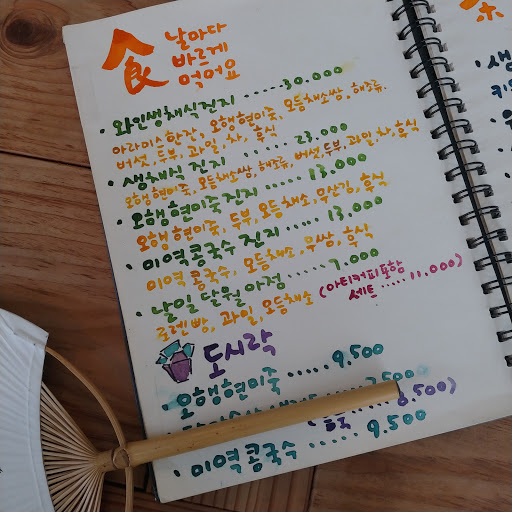 食 날마다
바르게
먹어요
· 와인생채식진지 ..... 30.000
아라미슨한잔, 오행현미죽, 모듬채소쌈, 해조류,
버섯, 두부, 과일, 차, 후식
· 생채식 진지 ..... 23.000
오행현미죽, 모듬채소쌈, 해조류, 버섯, 두부, 과일, 차, 후식
· 오행현미죽진지 ..... 13.000
오행현미죽, 두부, 모듬채소, 무상김, 후식
· 미역콩국수 진지 ..... 13.000
미역 콩국수, 모듬채소, 무쌈, 후식
· 날일 달월 아점 ..... 7.000
로렌빵, 과일, 모듬채소 (아티커피포함
세트 ..... 11.000)
도시락
· 오행현미죽 ..... 9.500
7.500
8.500)
· 미역콩국수 ..... 9.500